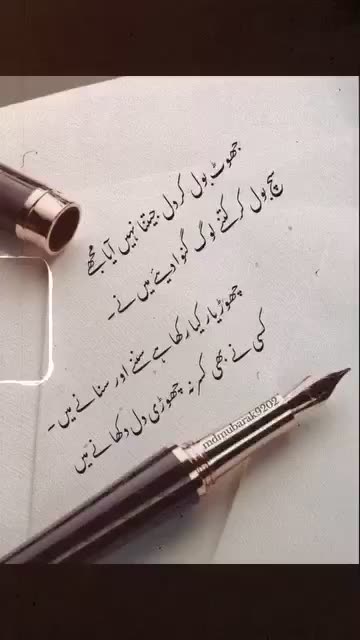 جھوٹ بول کر دل جیتنا نہیں آیا مجھے
سچ بول کر کتنے لوگ گنوا دیئے میں نے۔
چھوڑ یار کیا رکھا ہے سننے اور سنانے میں۔
کسی نے بھی کسر نہ چھوڑی دل دکھانے میں
mdmubarak9202